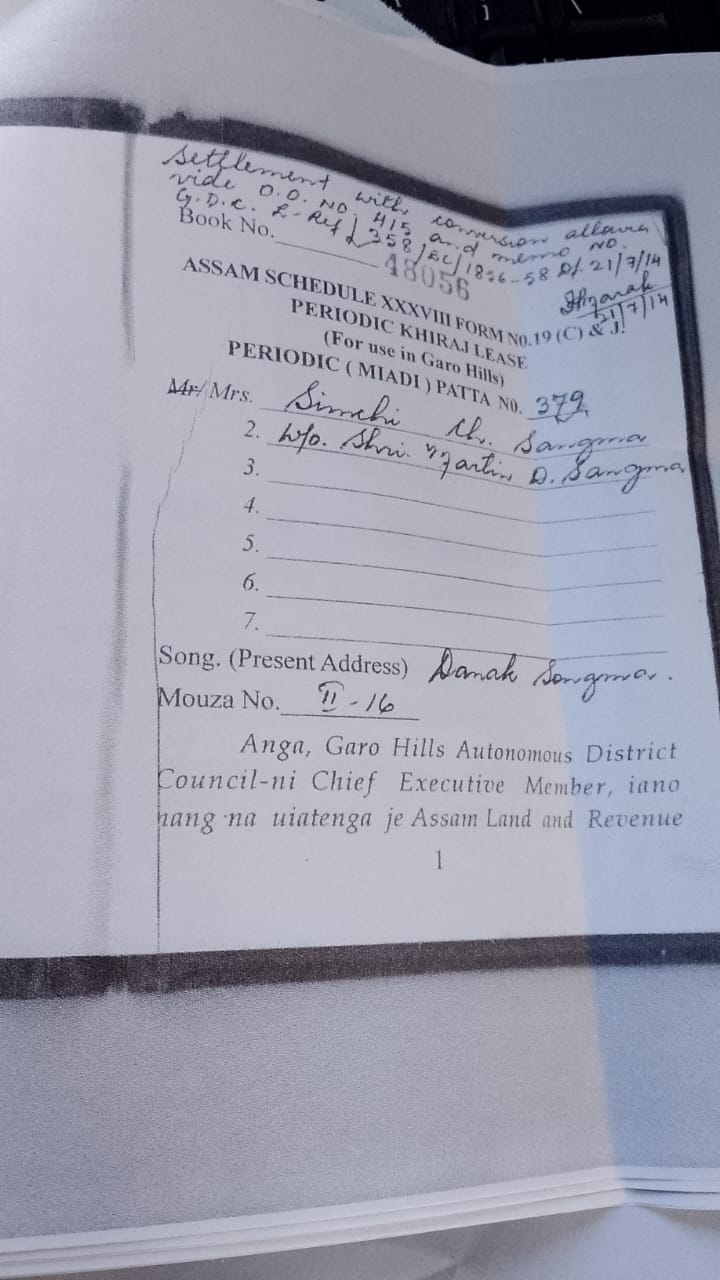 Settlement with conversion allowed
vide O.O. NO. 415 and memo NO.
G.D.C. L-Ref / 358/EC/1856-58 Dt. 21/7/14
21/7/14
Book No.
48056
ASSAM SCHEDULE XXXVIII FORM No.19 (C) & J.
PERIODIC KHIRAJ LEASE
(For use in Garo Hills)
PERIODIC ( MIADI ) PATTA N0. 379
Mr/ Mrs. Simchi Ch. Sangma
2. W/o. Shri. Martin D. Sangma
3.
4.
5.
6.
7.
Song. (Present Address) Danak Songma.
Mouza No. II - 16
Anga, Garo Hills Autonomous District
Council-ni Chief Executive Member, iano
nang·na uiatenga je Assam Land and Revenue
1